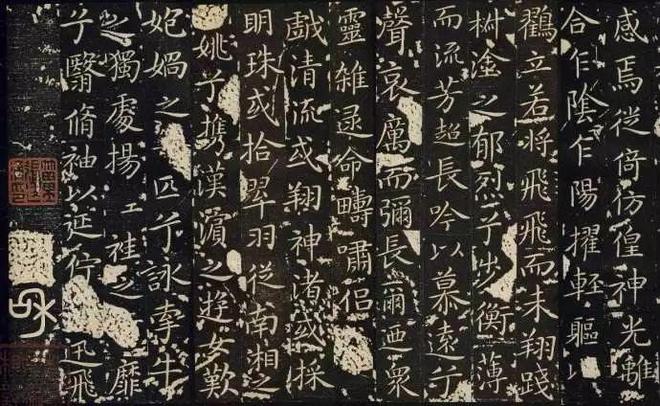 感焉徙倚彷徨神光離
合乍陰乍陽擢輕軀以
鸛立若將飛飛而未翔踐
椒塗之郁烈兮步衡薄
而流芳超長吟以慕遠兮
聲哀厲而彌長爾迺眾
靈雜遝命疇嘯侶
戲清流或翔神渚或採
明珠或拾翠羽從南湘之
姚兮攜漢濱之遊女歎
妑媧之匹兮詠牽牛
之獨處揚袿之靡
兮翳脩袖以延佇迅飛